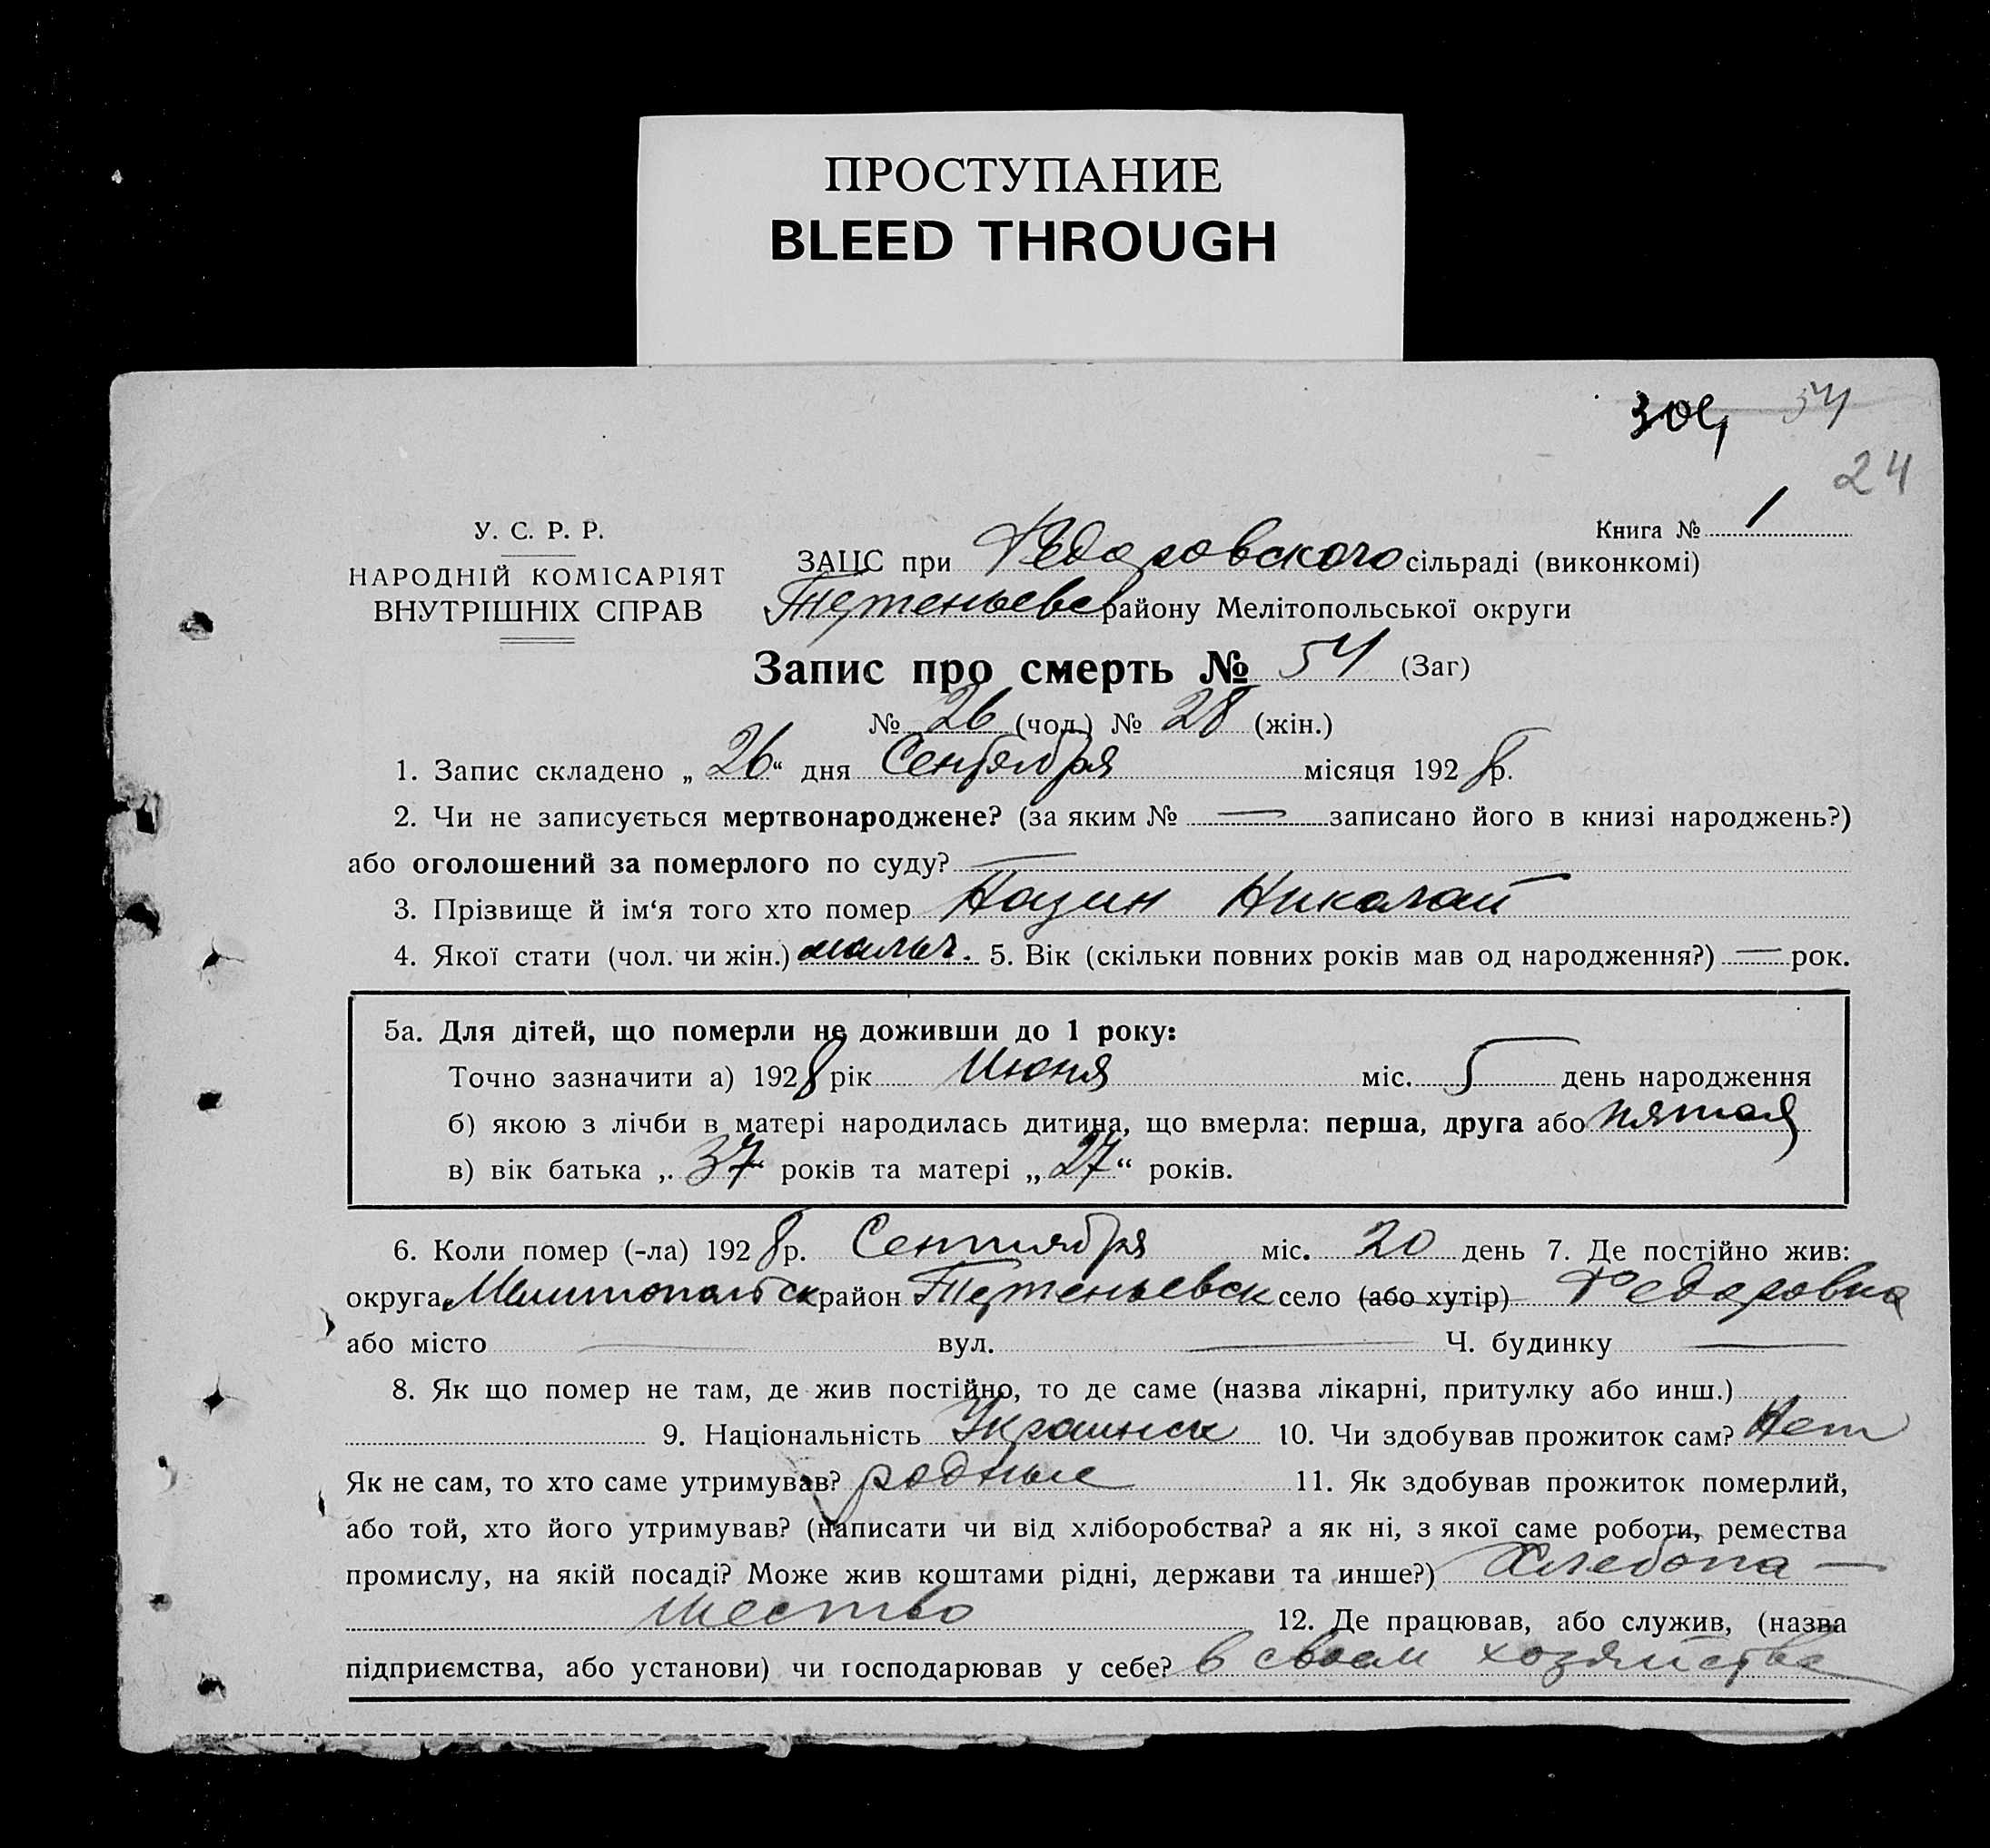 ПРОСТУПАНИЕ
BLEED THROUGH
54
24
У. С. Р. Р.
Книга № 1
НАРОДНІЙ КОМІСАРІЯТ
ВНУТРІШНІХ СПРАВ
ЗАЦС при Федоровского сільраді (виконкомі)
району Мелітопольської округи
Запис про смерть № 54 (Заг)
№ 26 (чол.) № 28 (жін.)
1. Запис складено „ 26 “ дня Сентября місяця 1928 р.
2. Чи не записується мертвонароджене? (за яким № — записано його в книзі народжень?)
або оголошений за померлого по суду? —
3. Прізвище й ім‘я того хто помер Николай
4. Якої стати (чол. чи жін.) мальч. 5. Вік (скільки повних років мав од народження?) — рок.
5а. Для дітей, що померли не доживши до 1 року:
Точно зазначити а) 1928 рік Июня міс. 5 день народження
б) якою з лічби в матері народилась дитина, що вмерла: перша, друга або пятая
в) вік батька „ 37 “ років та матері „ 27 “ років.
6. Коли помер (-ла) 1928 р. Сентября міс. 20 день 7. Де постійно жив:
округа Мелитопольск район село (або хутір) Федоровка
або місто — вул. — Ч. будинку —
8. Як що помер не там, де жив постійно, то де саме (назва лікарні, притулку або инш.)
9. Національність Украинск 10. Чи здобував прожиток сам? Нет
Як не сам, то хто саме утримував? родные 11. Як здобував прожиток померлий,
або той, хто його утримував? (написати чи від хліборобства? а як ні, з якої саме роботи, ремества
промислу, на якій посаді? Може жив коштами рідні, держави та инше?) Хлебопа-
шество 12. Де працював, або служив, (назва
підприємства, або установи) чи господарював у себе? в своем хозяйстве